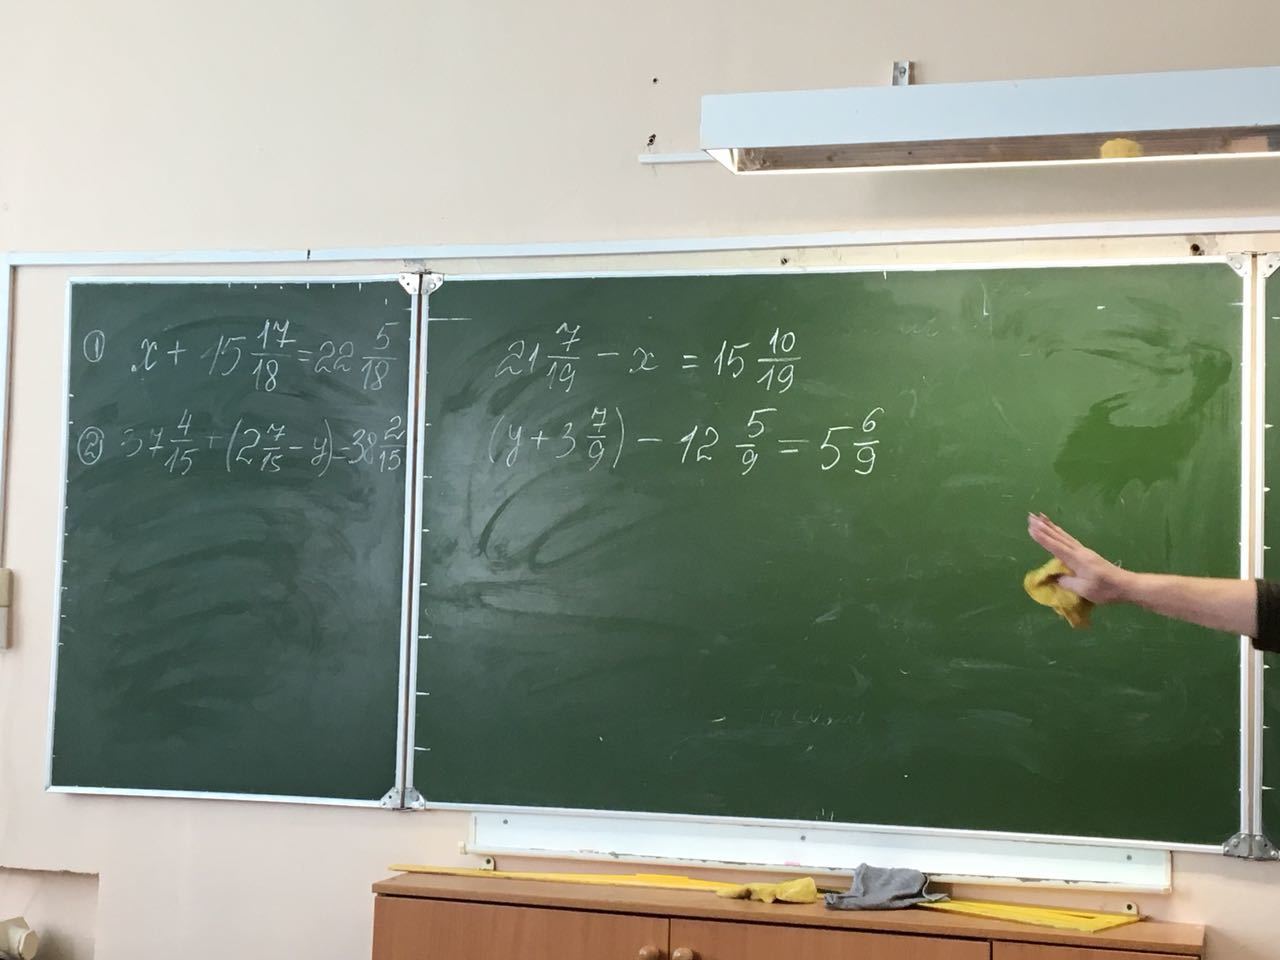 ① x + 15 17/18 = 22 5/18
② 37 4/15 + (2 7/15 - y) = 38 2/15
21 7/19 - x = 15 10/19
(y + 3 7/9) - 12 5/9 = 5 6/9